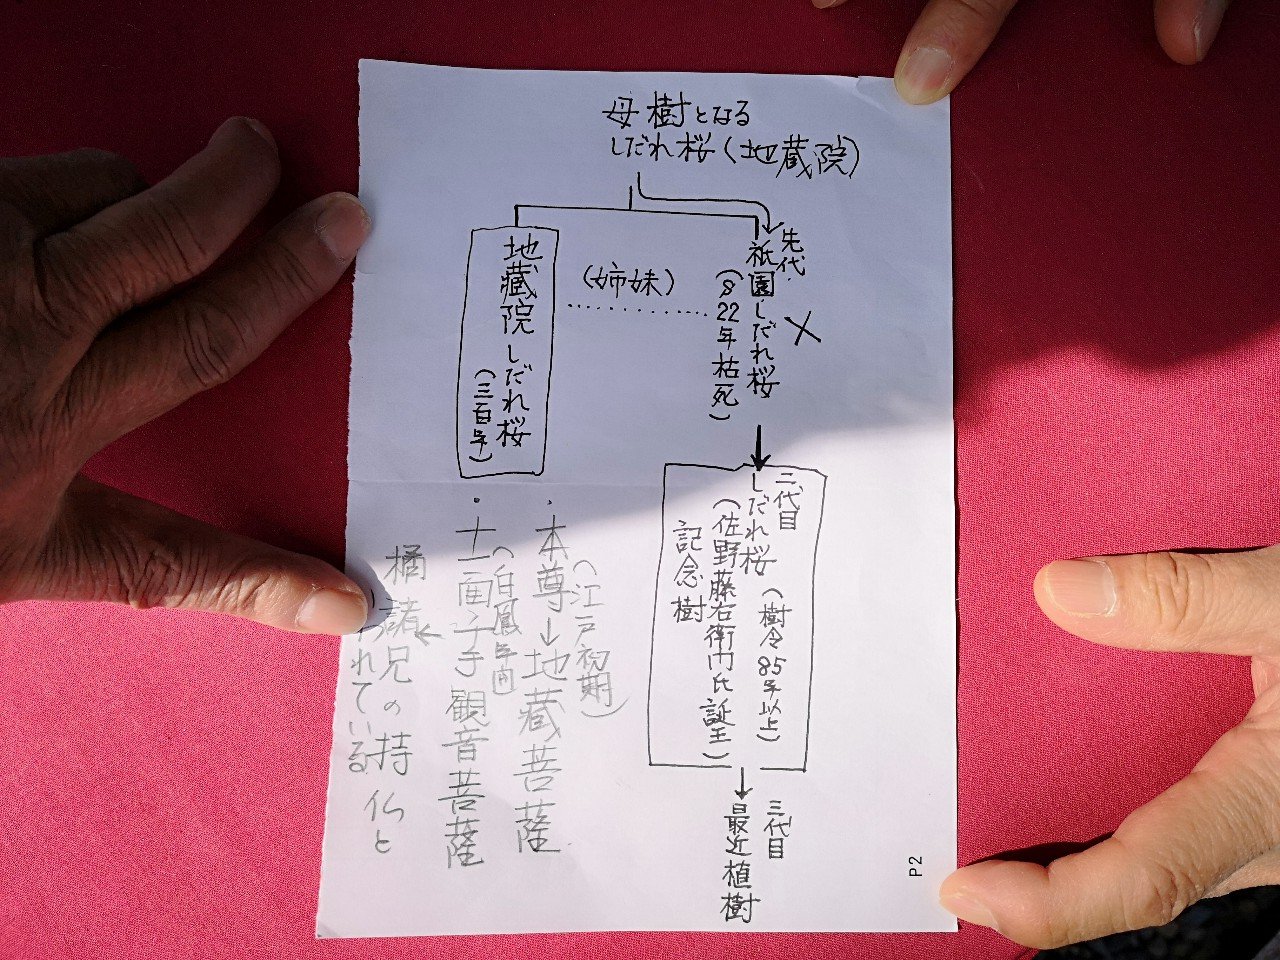 母樹となる
しだれ桜(地蔵院)
先代
祇園しだれ桜
(S22年枯死)
×
(姉妹)
地蔵院しだれ桜
(三百年)
二代目
しだれ桜(樹令85年以上)
(佐野藤右衛門氏誕生)
記念樹
三代目
最近植樹
(江戸初期)
・本尊→地蔵菩薩
(白鳳年間)
・十一面千手観音菩薩
橘諸兄の持仏と
われている
P2